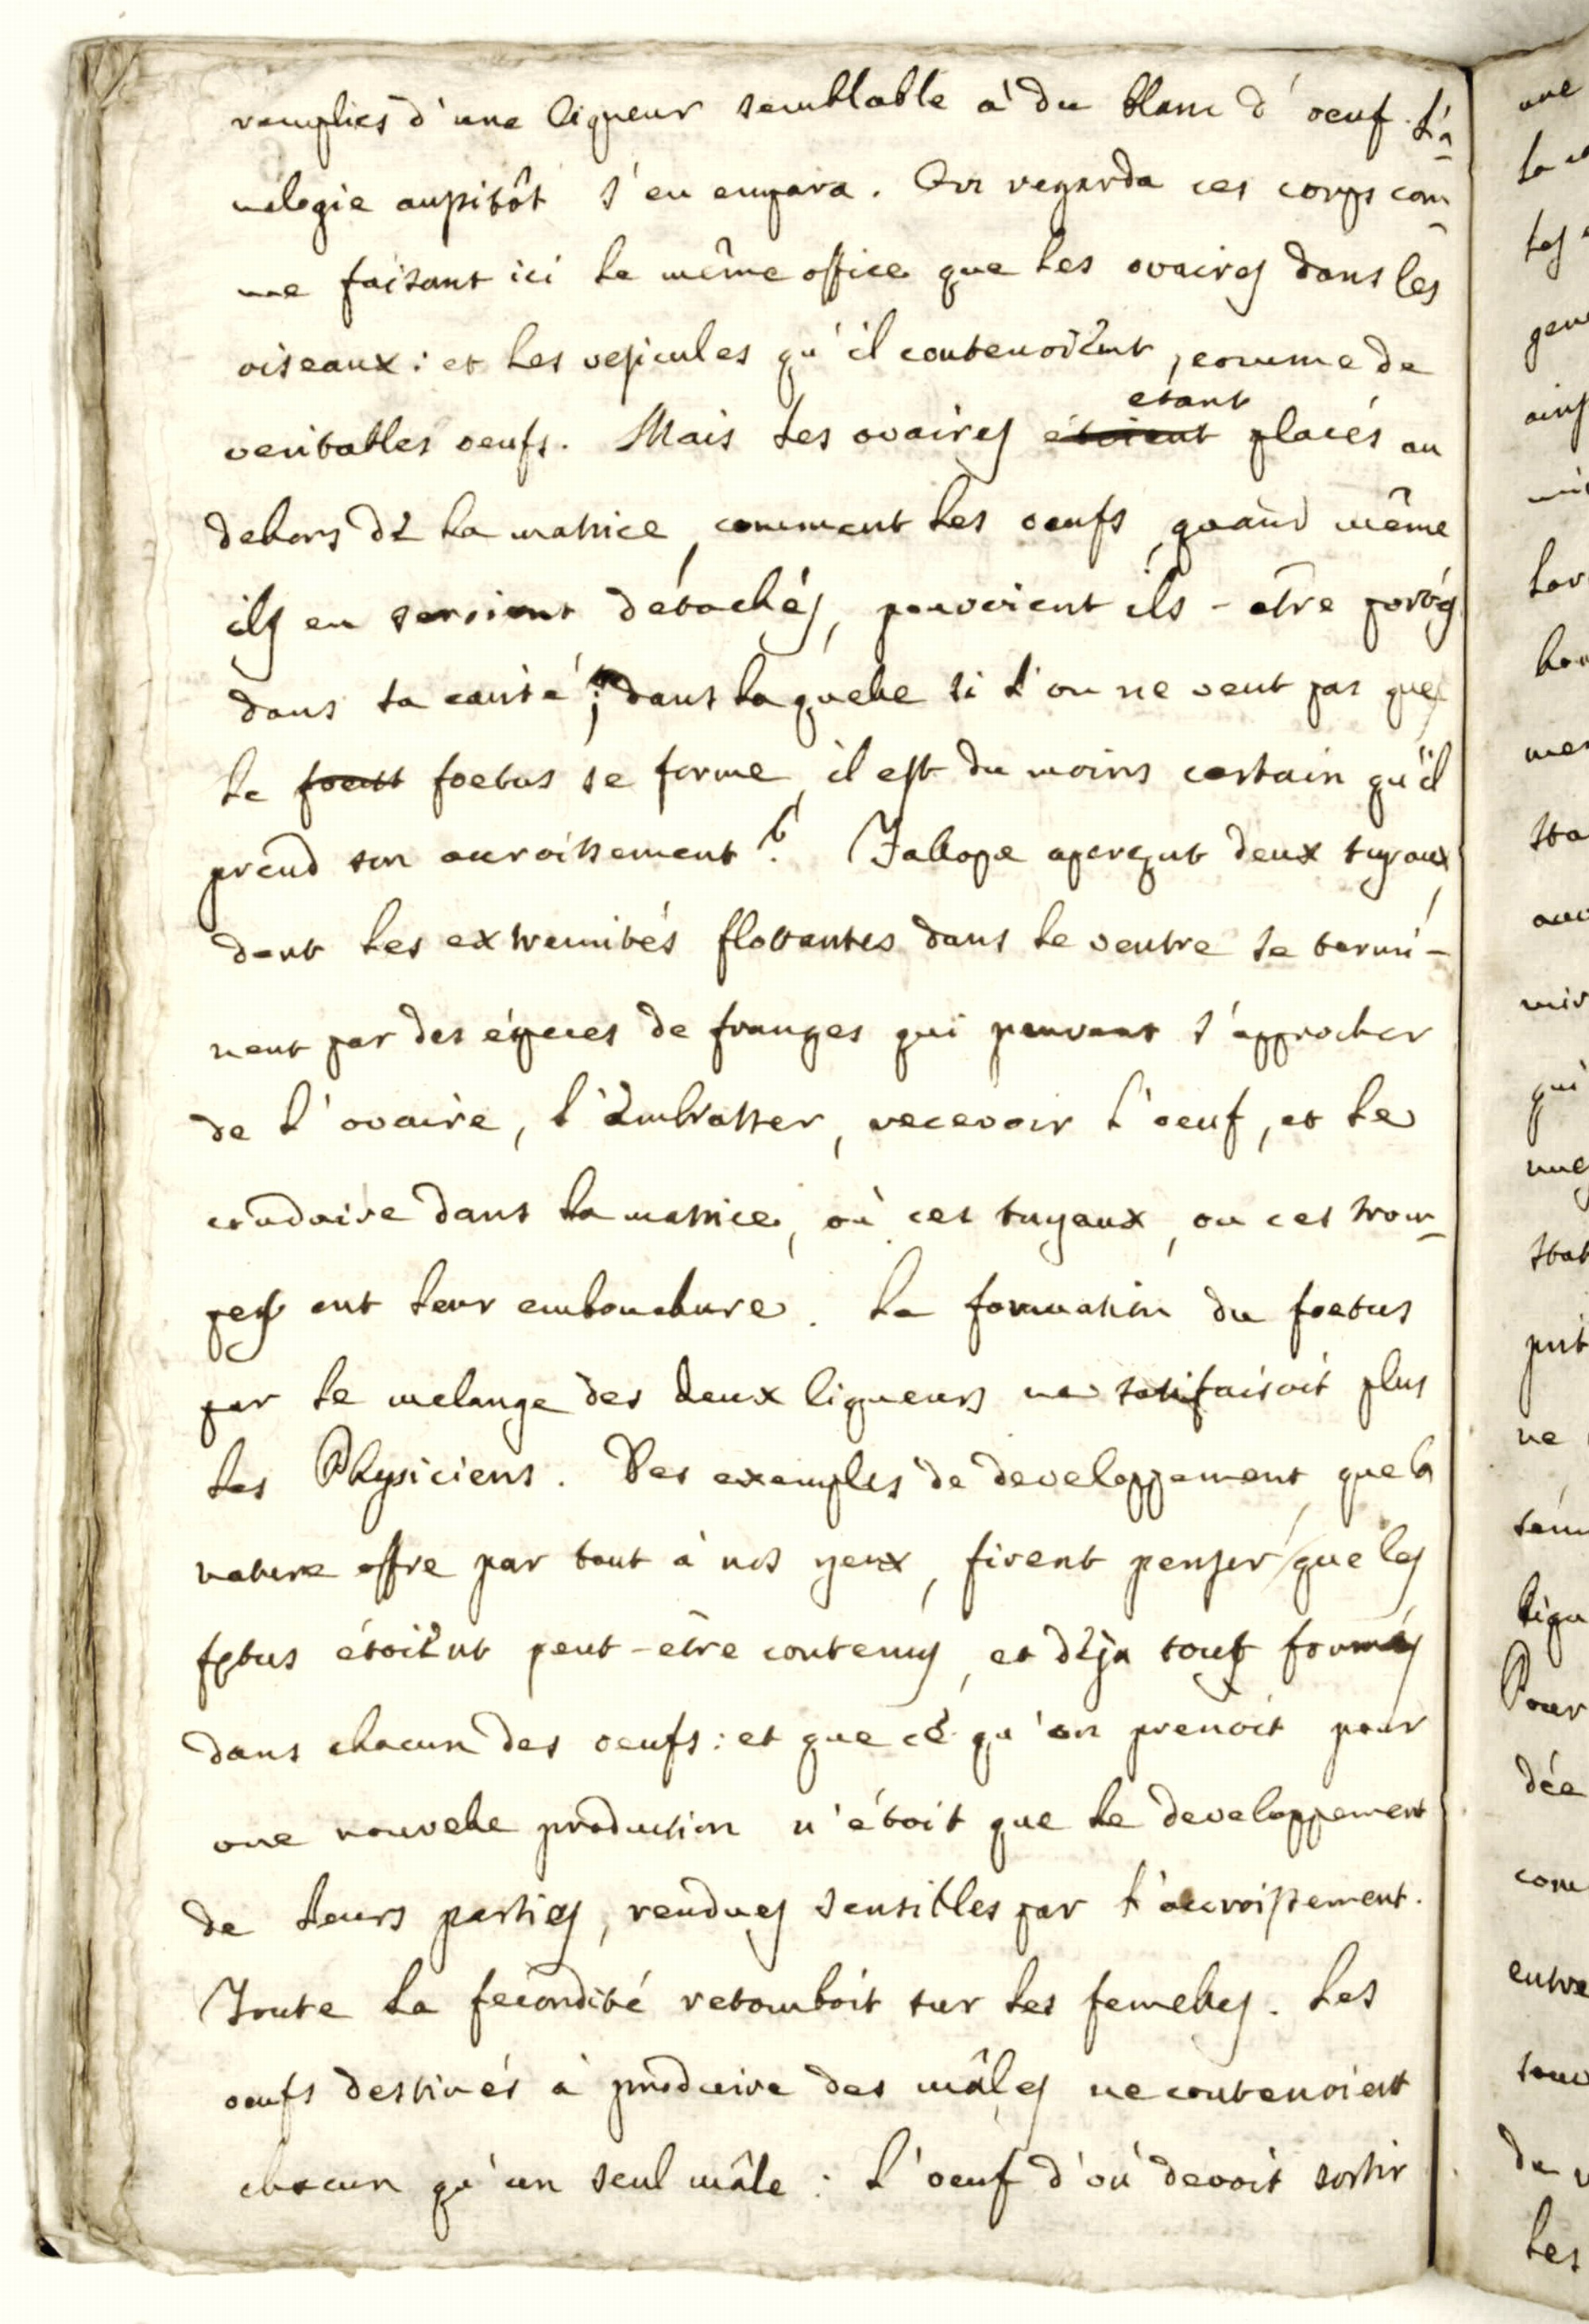 remplies d'une liqueur semblable à du blanc d'oeuf. L'a-
nalogie aussitôt s'en empara. On regarda ces corps com-
me faisant ici le même office que les ovaires dans les
oiseaux: et les vesicules qu'il contenoient, comme de
etant
veritables oeufs. Mais les ovaires étoient placés au
dehors de la matrice, comment les oeufs, quand même
ils en seroient détachés, pouvoient ils-être portés
dans sa cavité; dans laquelle si l'on ne veut pas que
le foetus se forme, il est du moins certain qu'il
prend son accroissement? Fallope aperçut deux tuyaux,
dont les extremités flottantes dans le ventre se termi-
nent par des éspeces de franges qui peuvent s'approcher
de l'ovaire, l'embrasser, recevoir l'oeuf, et le
conduire dans la matrice, où ces tuyaux, ou ces trom-
pes ont leur embouchure. La formation du foetus
par le melange des deux liqueurs ne satisfaisoit plus
les Physiciens. Des exemples de developpement, que la
nature offre par tout à nos yeux, firent penser que les
fętus étoient peut-être contenus, et déja tous formés
dans chacun des oeufs: et que ce qu'on prenoit pour
une nouvelle production n'étoit que le developpement
de leurs parties, rendues sensibles par l'accroissement.
Toute la fecondité retomboit sur les femelles. Les
oeufs destinés à produire des mâles ne contenoient
chacun qu'un seul mâle: l'oeuf d'où devoit sortir